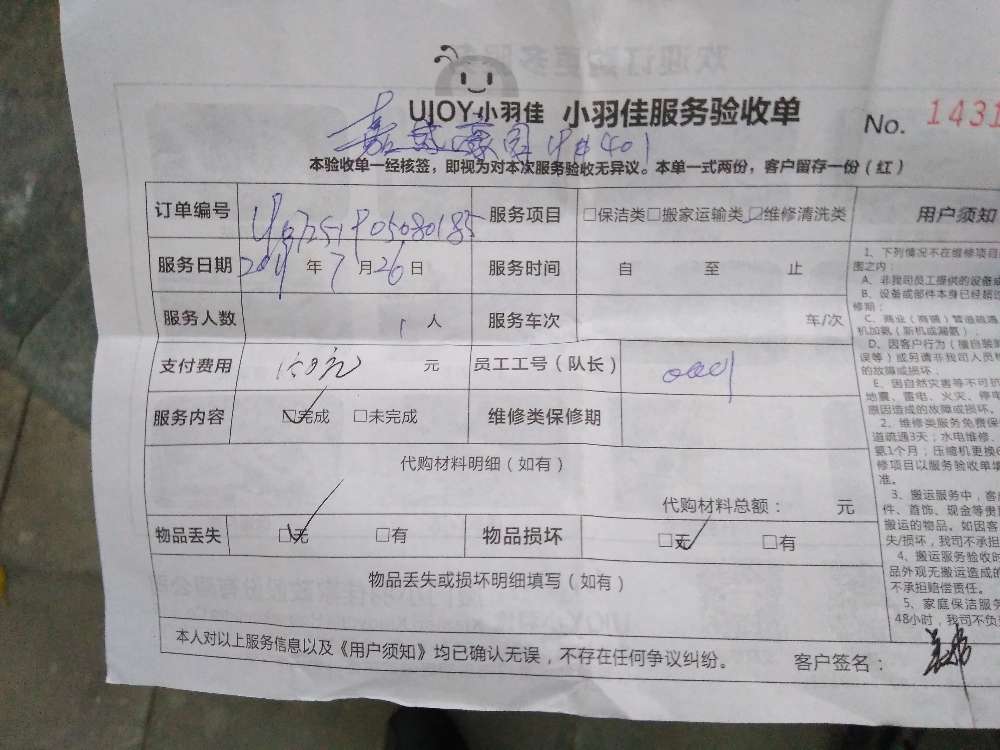 UJOY小羽佳 小羽佳服务验收单
No. 1431
401
本验收单一经核签，即视为对本次服务验收无异议。本单一式两份，客户留存一份（红）
订单编号 服务项目 □保洁类□搬家运输类□维修清洗类 用户须知
服务日期 年 7 月 26 日 服务时间 自 至 止
服务人数 1 人 服务车次 车/次
支付费用 元 员工工号（队长）
服务内容 □完成 □未完成 维修类保修期
代购材料明细（如有）
代购材料总额： 元
物品丢失 □无 □有 物品损坏 □无 □有
物品丢失或损坏明细填写（如有）
本人对以上服务信息以及《用户须知》均已确认无误，不存在任何争议纠纷。 客户签名：
1、下列情况不在维修项目
围之内：
A、非我司员工提供的设备
B、设备或部件本身已经超
修期；
C、商业（商铺）管道疏通
机加氨（新机或漏氨）
D、因客户行为（擅自装
误等）或另请非我司人员
的故障或损坏；
E、因自然灾害等不可抗
地震、雷电、火灾、停电
原因造成的故障或损坏。
2、维修类服务免费保
道疏通3天；水电维修、
氨1个月；压缩机更换
修项目以服务验收单
准。
3、搬运服务中，客
件、首饰、现金等贵
搬运的物品。如因客
失/损坏，我司不承担
4、搬运服务验收时
品外观无搬运造成的
不承担赔偿责任。
5、家庭保洁服务
48小时，我司不负